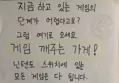 지금 하고 있는 게임의
단계가 어렵다고요?
그럼 여기로 오세요.
게임 깨주는 가게!
닌텐도 스위치에 있는
모든 게임은 다 됩니다.